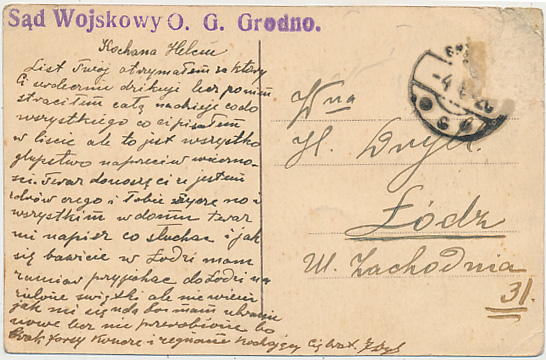 Sąd Wojskowy O. G. Grodno.
Kochana Helciu
List Twój otrzymałem za który
Ci serdecznie dziękuję lecz po nim
straciłem całą nadzieję co do
wszystkiego co Ci pisałem
w liście ale to jest wszystko
głupstwo naprzeciw wierno-
ści. Teraz donoszę Ci że jestem
zdrów czego i Tobie życzę no i
wszystkim w domu teraz
mi napisz co słychać i jak
się bawicie w Łodzi mam
zamiar przyjechać do Łodzi na
zielone świątki ale nie wiem
jak mi się uda bo mam ubranie
nowe lecz nie przerobione bo
brak forsy kończę i żegnam kochający Cię brat
Wna
H.
Łódz
Ul. Zachodnia
31.